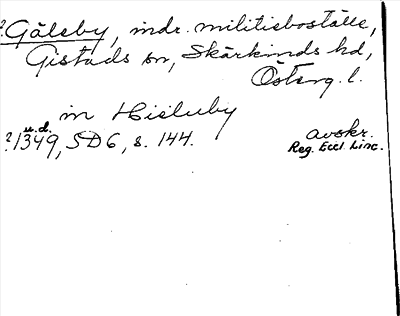 ?Gäleby, indr. militieboställe,
Gistads sn, Skärkinds hd,
Österg. l.
in Hieluby
u.d.
?1349, SD6, s. 144.
avskr.
Reg. Eccl. Linc.